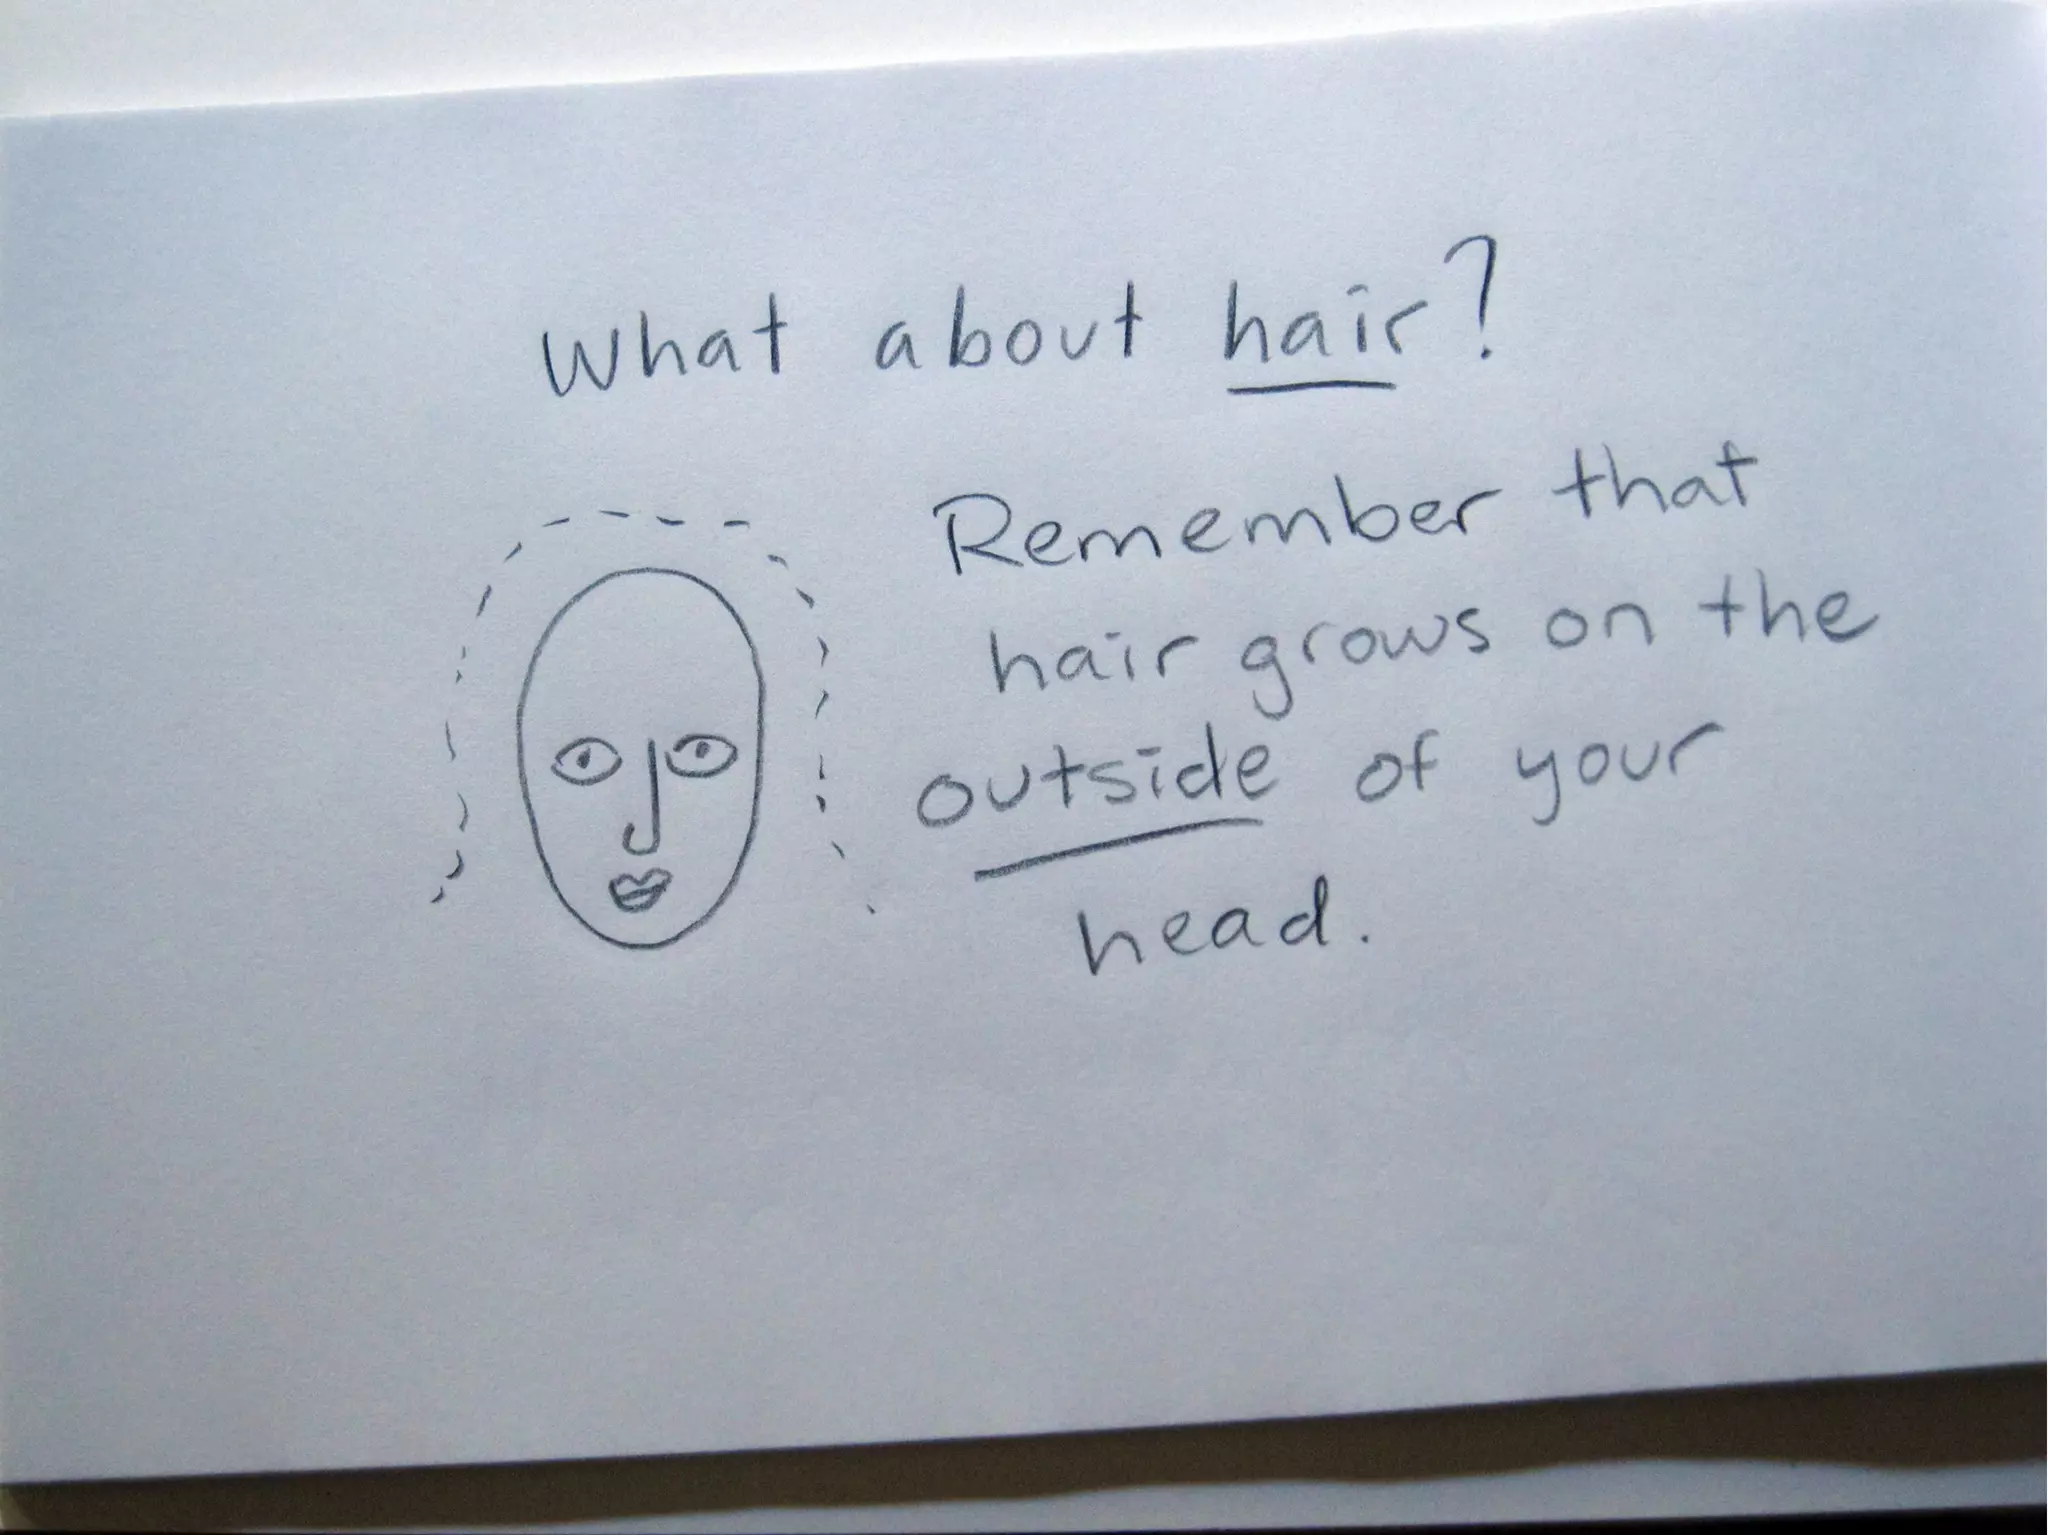 What about hair?
Remember that
hair grows on the
outside of your
head.